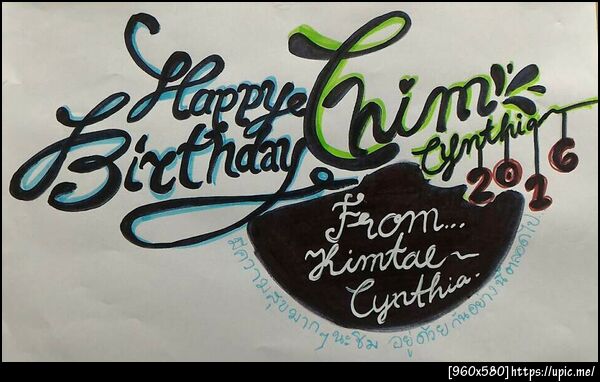 Happy
Birthday
Chim
Cynthia
2016
From...
Kimtae~
Cynthia.
มีความสุขมากๆนะชิม อยู่ด้วยกันอย่างนี้ตลอดไป
[960x580]https://upic.me/